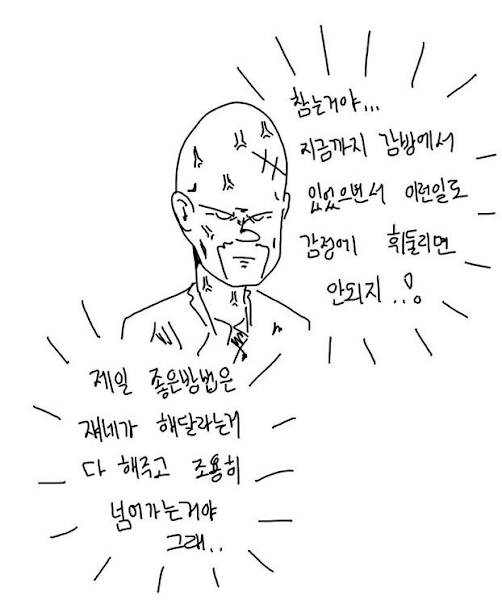 참는거야...
지금까지 감방에서
있었으면서 이런일로
감정에 휘둘리면
안되지..!
제일 좋은방법은
쟤네가 해달라는거
다 해주고 조용히
넘어가는거야
그래..